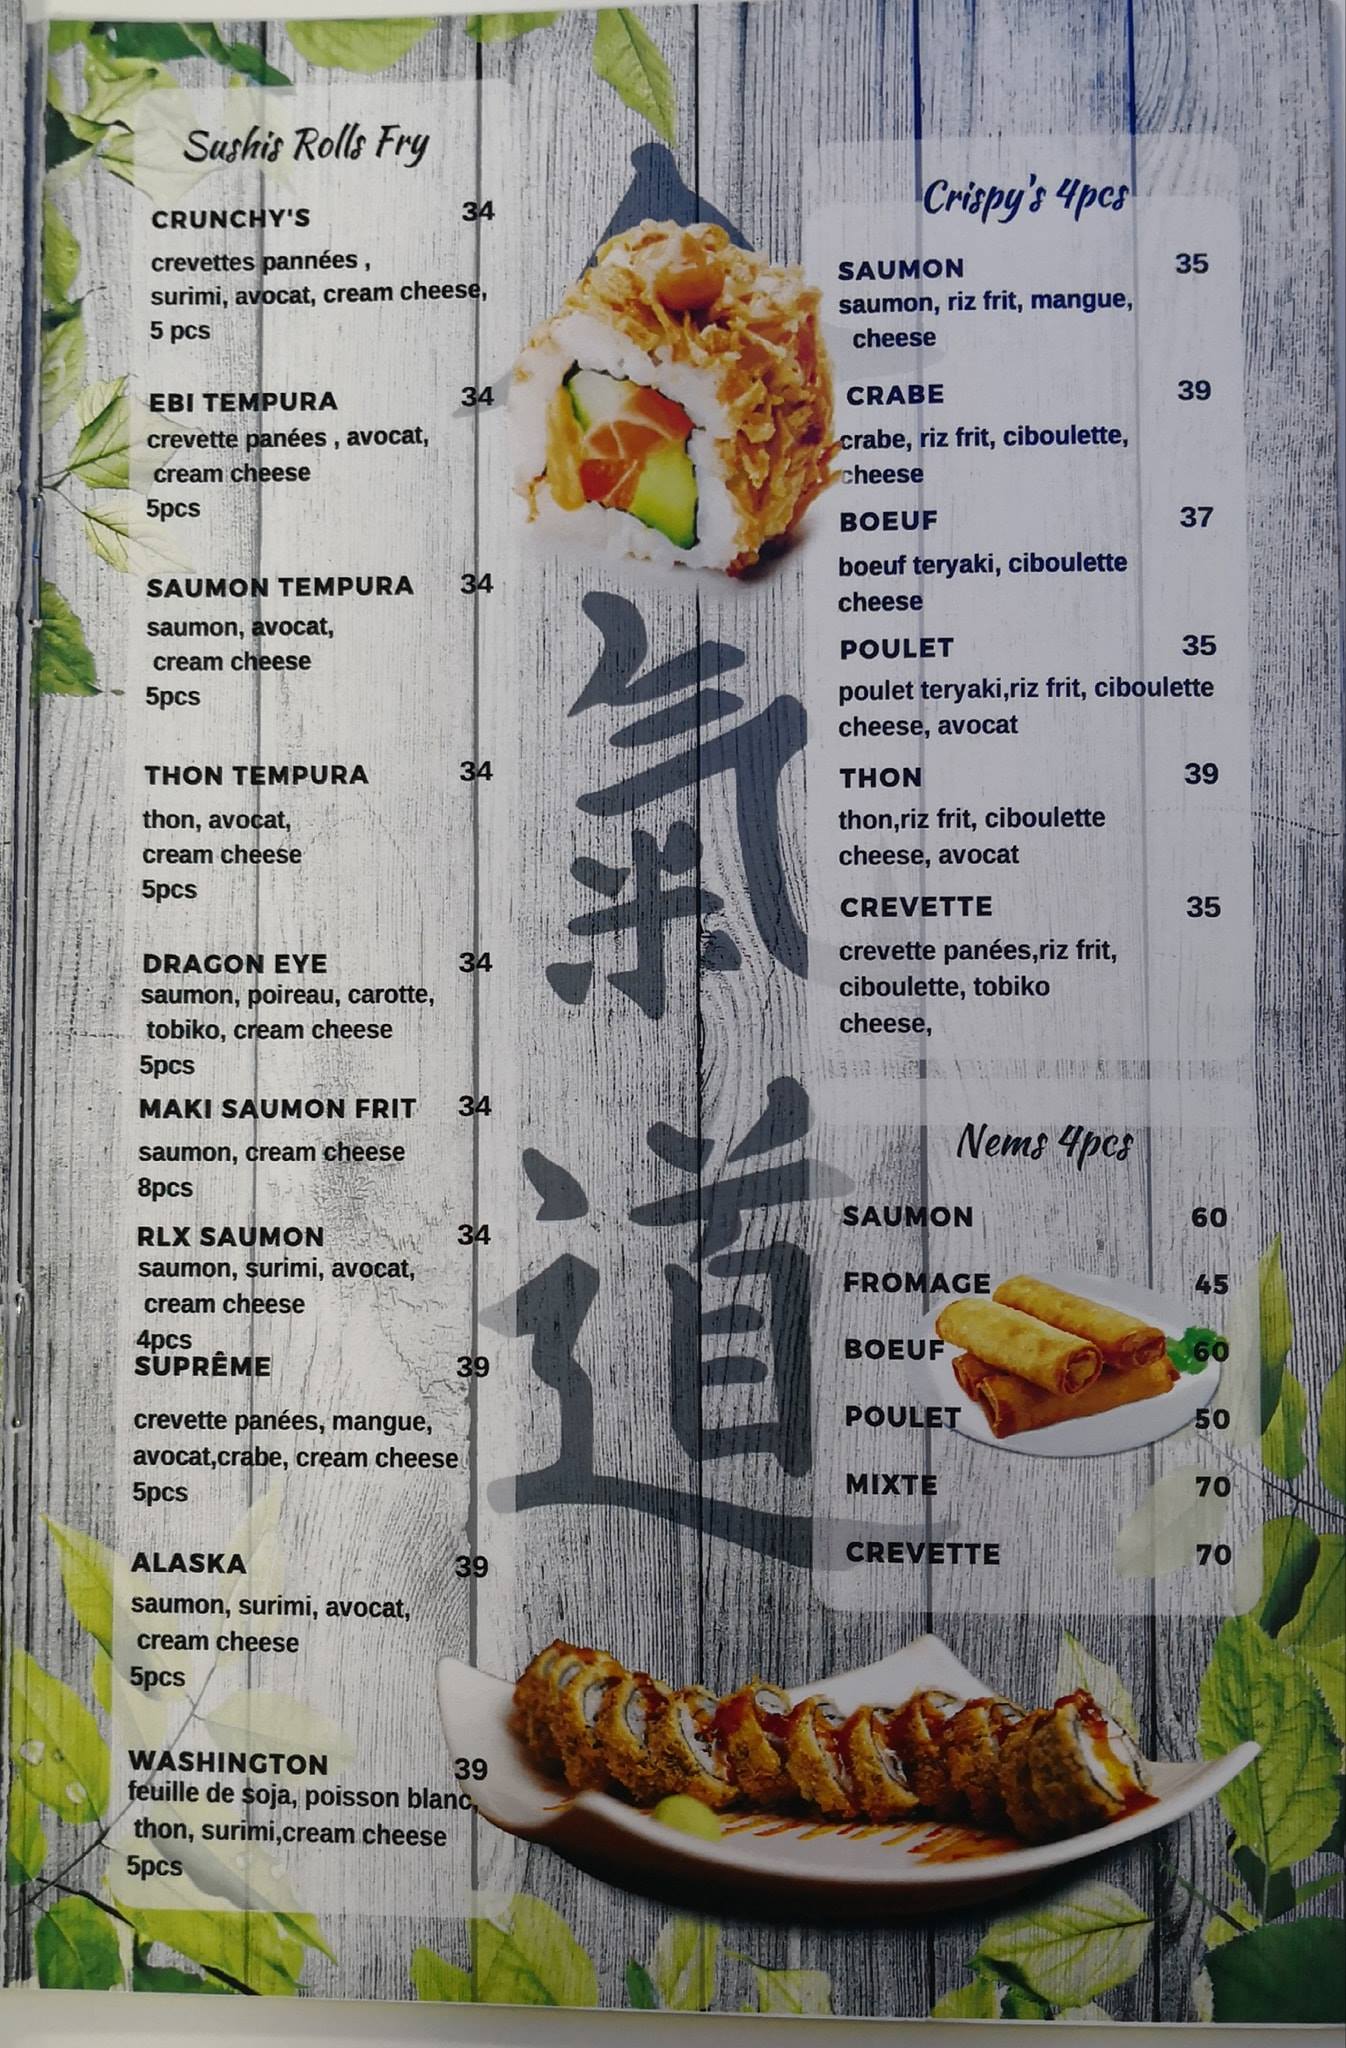 Sushis Rolls Fry
CRUNCHY'S 34
crevettes pannées ,
surimi, avocat, cream cheese,
5 pcs
EBI TEMPURA 34
crevette panées , avocat,
cream cheese
5pcs
SAUMON TEMPURA 34
saumon, avocat,
cream cheese
5pcs
THON TEMPURA 34
thon, avocat,
cream cheese
5pcs
DRAGON EYE 34
saumon, poireau, carotte,
tobiko, cream cheese
5pcs
MAKI SAUMON FRIT 34
saumon, cream cheese
8pcs
RLX SAUMON 34
saumon, surimi, avocat,
cream cheese
4pcs
SUPRÊME 39
crevette panées, mangue,
avocat,crabe, cream cheese
5pcs
ALASKA 39
saumon, surimi, avocat,
cream cheese
5pcs
WASHINGTON 39
feuille de soja, poisson blanc,
thon, surimi,cream cheese
5pcs
氣
道
Crispy's 4pcs
SAUMON 35
saumon, riz frit, mangue,
cheese
CRABE 39
crabe, riz frit, ciboulette,
cheese
BOEUF 37
boeuf teryaki, ciboulette
cheese
POULET 35
poulet teryaki,riz frit, ciboulette
cheese, avocat
THON 39
thon,riz frit, ciboulette
cheese, avocat
CREVETTE 35
crevette panées,riz frit,
ciboulette, tobiko
cheese,
Nems 4pcs
SAUMON 60
FROMAGE 45
BOEUF 60
POULET 50
MIXTE 70
CREVETTE 70